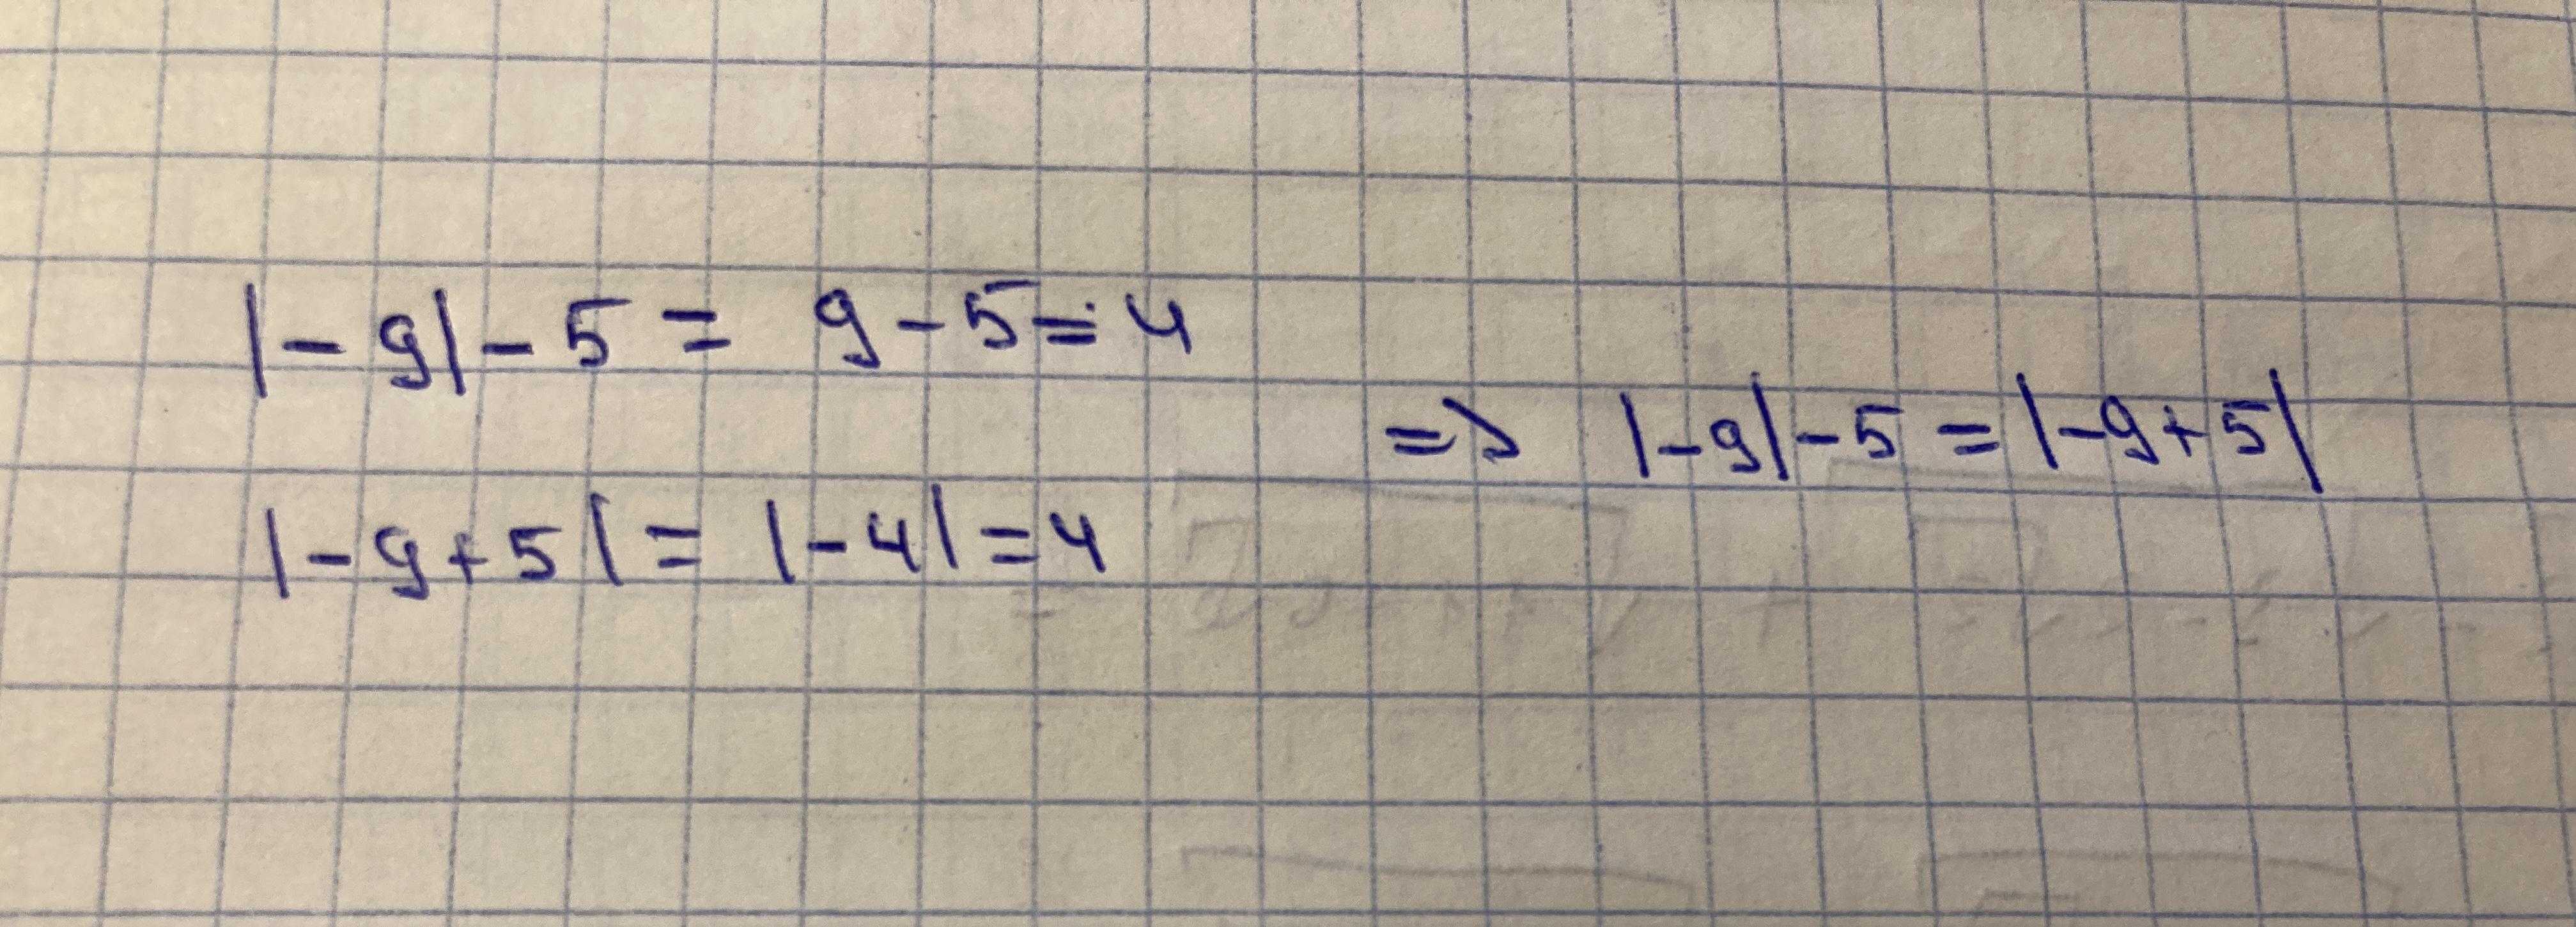 |-9|-5 = 9-5=4
=> |-9|-5 = |-9+5|
|-9+5| = |-4| = 4